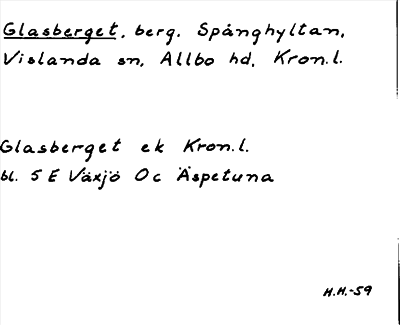 Glasberget, berg. Spånghyltan,
Vislanda sn, Allbo hd, Kron.l.
Glasberget ek Kron.l.
bl. 5 E Växjö Oc Äspetuna
H.H.-59